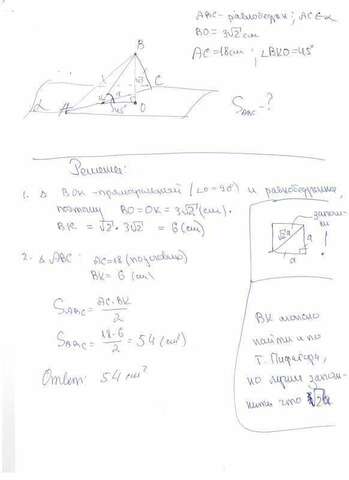 ABC - равнобедр; AC ∈ α
BO = 3√2 см
AC = 18 см; ∠BKO = 45°
S ABC - ?
B
C
A
K
O
α
45°
Решение:
1. Δ BOK - прямоугольный (∠O = 90°) и равнобедренный,
поэтому BO = OK = 3√2 (см).
BK = √2 · 3√2 = 6 (см)
2. Δ ABC: AC = 18 (по условию)
BK = 6 (см)
S ABC = AC · BK / 2
S ABC = 18 · 6 / 2 = 54 (см²)
Ответ: 54 см²
запом-
ни
!
√2a
a
a
BK можно
найти и по
т. Пифагора,
но лучше запом-
нить что √2a